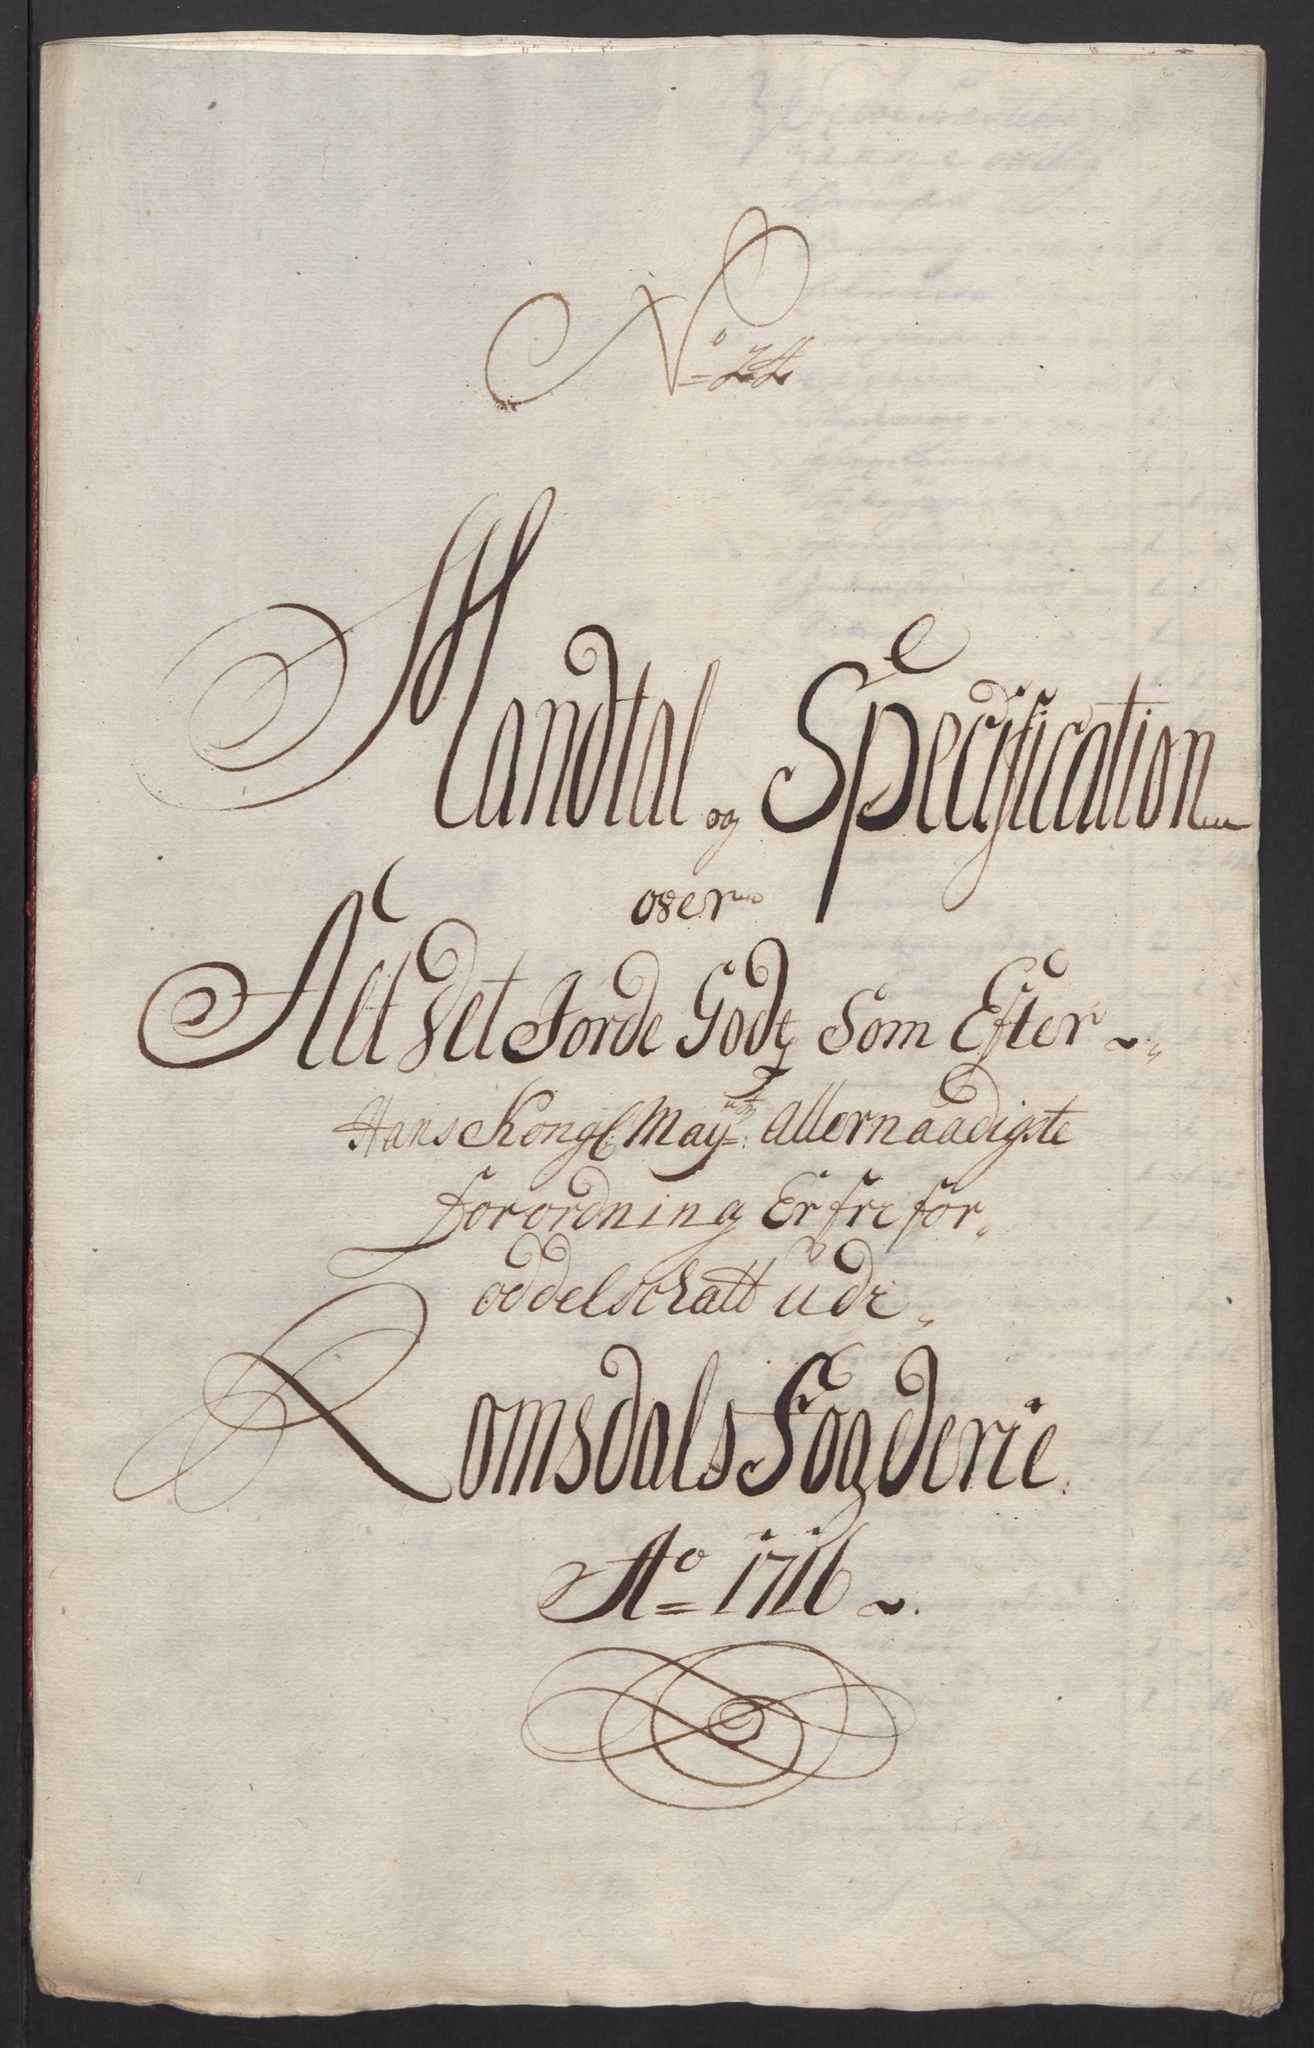 No
Mandtal og Specification
over
Alt det Jorde Godtz Som Efter
Hans Kongl: Mayts: Allernaadigste
forordning Er fri for
oddelschatt udi
Romsdals Fogderie
Ao 1716